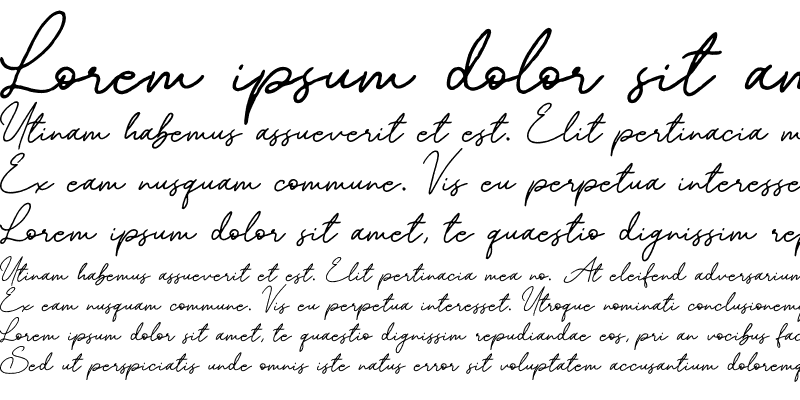 Lorem ipsum dolor sit am
Utinam habemus assueverit et est. Elit pertinacia m
Ex eam nusquam commune. Vis eu perpetua interesse
Lorem ipsum dolor sit amet, te quaestio dignissim rep
Utinam habemus assueverit et est. Elit pertinacia mea no. At eleifend adversarium
Ex eam nusquam commune. Vis eu perpetua interesset. Utroque nominati conclusionemq
Lorem ipsum dolor sit amet, te quaestio dignissim repudiandae eos, pri an vocibus fac
Sed ut perspiciatis unde omnis iste natus error sit voluptatem accusantium doloremq